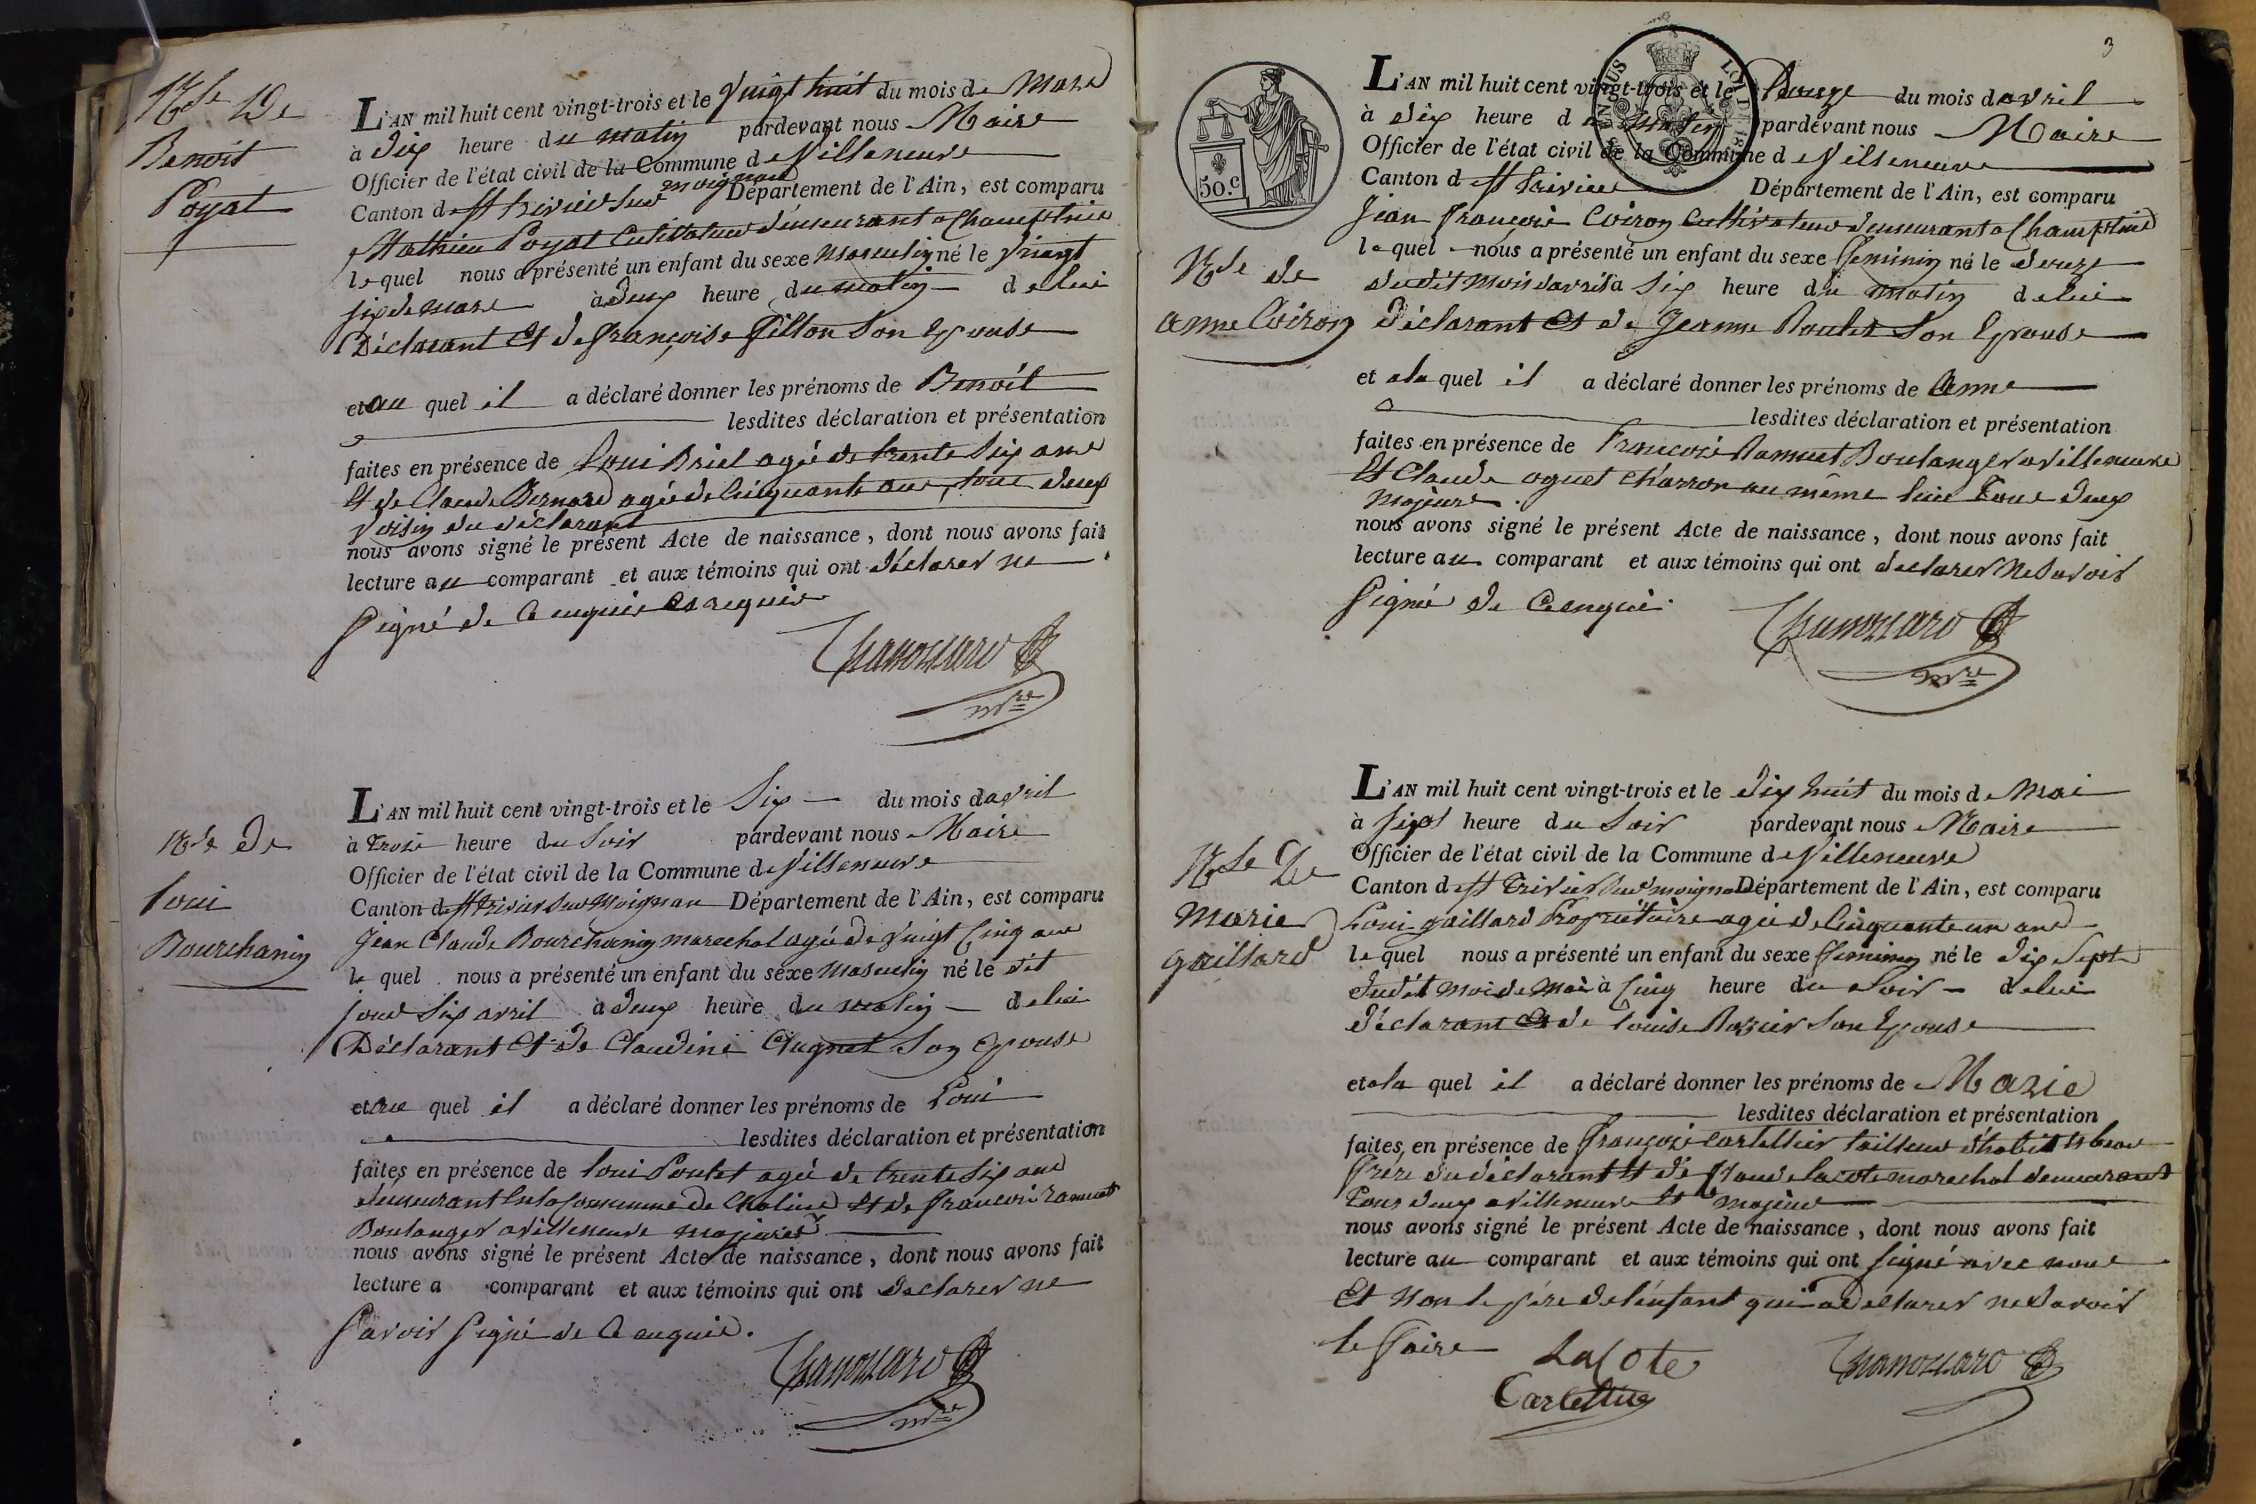 Nce De
Benoit
Poyat
L'AN mil huit cent vingt-trois et le vingt huit du mois de Mars
à dix heure du matin pardevant nous Maire
Officier de l'état civil de la Commune de Villeneuve
Canton de St trivier sur moignans Département de l'Ain, est comparu
Mathieu Poyat Cultivateur demeurant a Champtein
lequel nous a présenté un enfant du sexe masculin né le vingt
six de mars à deux heure du matin de lui
Déclarant Et de françoise fillon Son Epouse
et au quel il a déclaré donner les prénoms de Benoît
lesdites déclaration et présentation
faites en présence de Loui Briel agé de trente Six ans
Et de Claude Bernard agé de Cinquante ans, tous deux
voisin du déclarant
nous avons signé le présent Acte de naissance, dont nous avons fait
lecture au comparant et aux témoins qui ont déclarer ne
Signé de Ce enquis Et requis
Chanoszard
mre
Nce De
Loui
Bourchanin
L'AN mil huit cent vingt-trois et le Six du mois d avril
à trois heure du Soir pardevant nous Maire
Officier de l'état civil de la Commune de Villeneuve
Canton de St trivier sur Moignan Département de l'Ain, est comparu
Jean Claude Bourchanin marechal agé de vingt Cinq ans
le quel nous a présenté un enfant du sexe Masculin né le dit
jour Six avril à deux heure du matin de lui
Déclarant Et de Claudine Clugnet Son Epouse
et au quel il a déclaré donner les prénoms de Loui
lesdites déclaration et présentation
faites en présence de Loui Poulet agé de trente Six ans
demeurant En la Commune de Chaleins Et de francois ramuet
Boulanger a Villeneuve majeures
nous avons signé le présent Acte de naissance, dont nous avons fait
lecture a comparant et aux témoins qui ont declarer ne
Savoir Signé de Ce enquis.
Chanoszard
mre
3
50.c
L'AN mil huit cent vingt-trois et le Douze du mois d avril
à dix heure du matin pardevant nous Maire
Officier de l'état civil de la Commune de Villeneuve
Canton de St trivier Département de l'Ain, est comparu
Jean francois Coiron Cultivateur demeurant a Champtein
le quel nous a présenté un enfant du sexe feminin né le douze
Nce de
anne Coiron
du dit mois d'avril à Six heure du matin de lui
déclarant Et de Jeanne Poulet Son Epouse
et a la quel il a déclaré donner les prénoms de Anne
lesdites déclaration et présentation
faites en présence de Francois Ramuet Boulanger a Villeneuve
Et Claude aguet Charron au même lieu tous deux
majeurs
nous avons signé le présent Acte de naissance, dont nous avons fait
lecture au comparant et aux témoins qui ont declarer ne Savoir
Signé de Ce enquis.
Chanoszard
mre
Nce De
Marie
gaillard
L'AN mil huit cent vingt-trois et le dix huit du mois de Mai
à Sept heure du Soir pardevant nous Maire
Officier de l'état civil de la Commune de Villeneuve
Canton de St Trivier Sur moignan Département de l'Ain, est comparu
Loui gaillard Propriétaire agé de Cinquante un ans
le quel nous a présenté un enfant du sexe feminin né le dix Sept
du dit mois de Mai à Cinq heure du Soir de lui
déclarant Et de Louise Rozier Son Epouse
et a la quel il a déclaré donner les prénoms de Marie
lesdites déclaration et présentation
faites en présence de françois Cartellier tailleur d'habit Et beau
frere du déclarant Et de Claude lacote marechal demeurant
tous deux a Villeneuve Et majeur
nous avons signé le présent Acte de naissance, dont nous avons fait
lecture au comparant et aux témoins qui ont Signé avec nous
Et Non le pere de l'enfant qui a déclarer ne Savoir
le faire
Lacote
Chanoszard
Cartellier